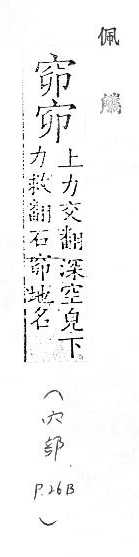 佩觿
窌窌
上力交翻深空皃下
力救翻石窌地名
(穴部 P.26B)